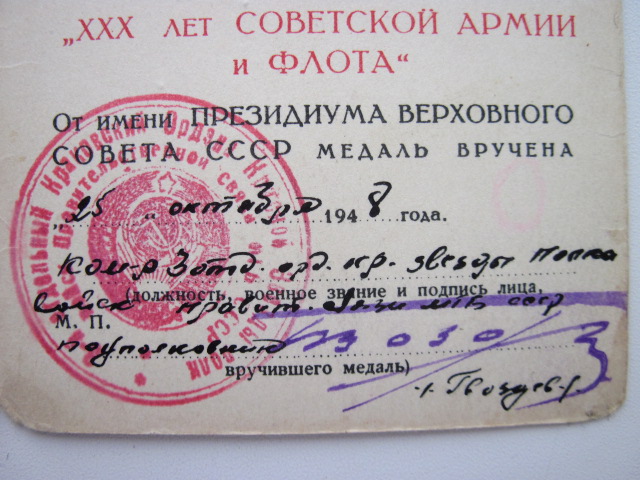 „XXX ЛЕТ СОВЕТСКОЙ АРМИИ
и ФЛОТА“
От имени ПРЕЗИДИУМА ВЕРХОВНОГО
СОВЕТА СССР МЕДАЛЬ ВРУЧЕНА
"25" октября 1948 года.
ком-р 3 отд. орд. кр. звезды полка
(должность, военное звание и подпись лица,
войск правит. связи МГБ ссср
М. П.
подполковник
вручившего медаль)
Отдельный Краковский Ордена Красной Звезды
правительственной связи
СССР